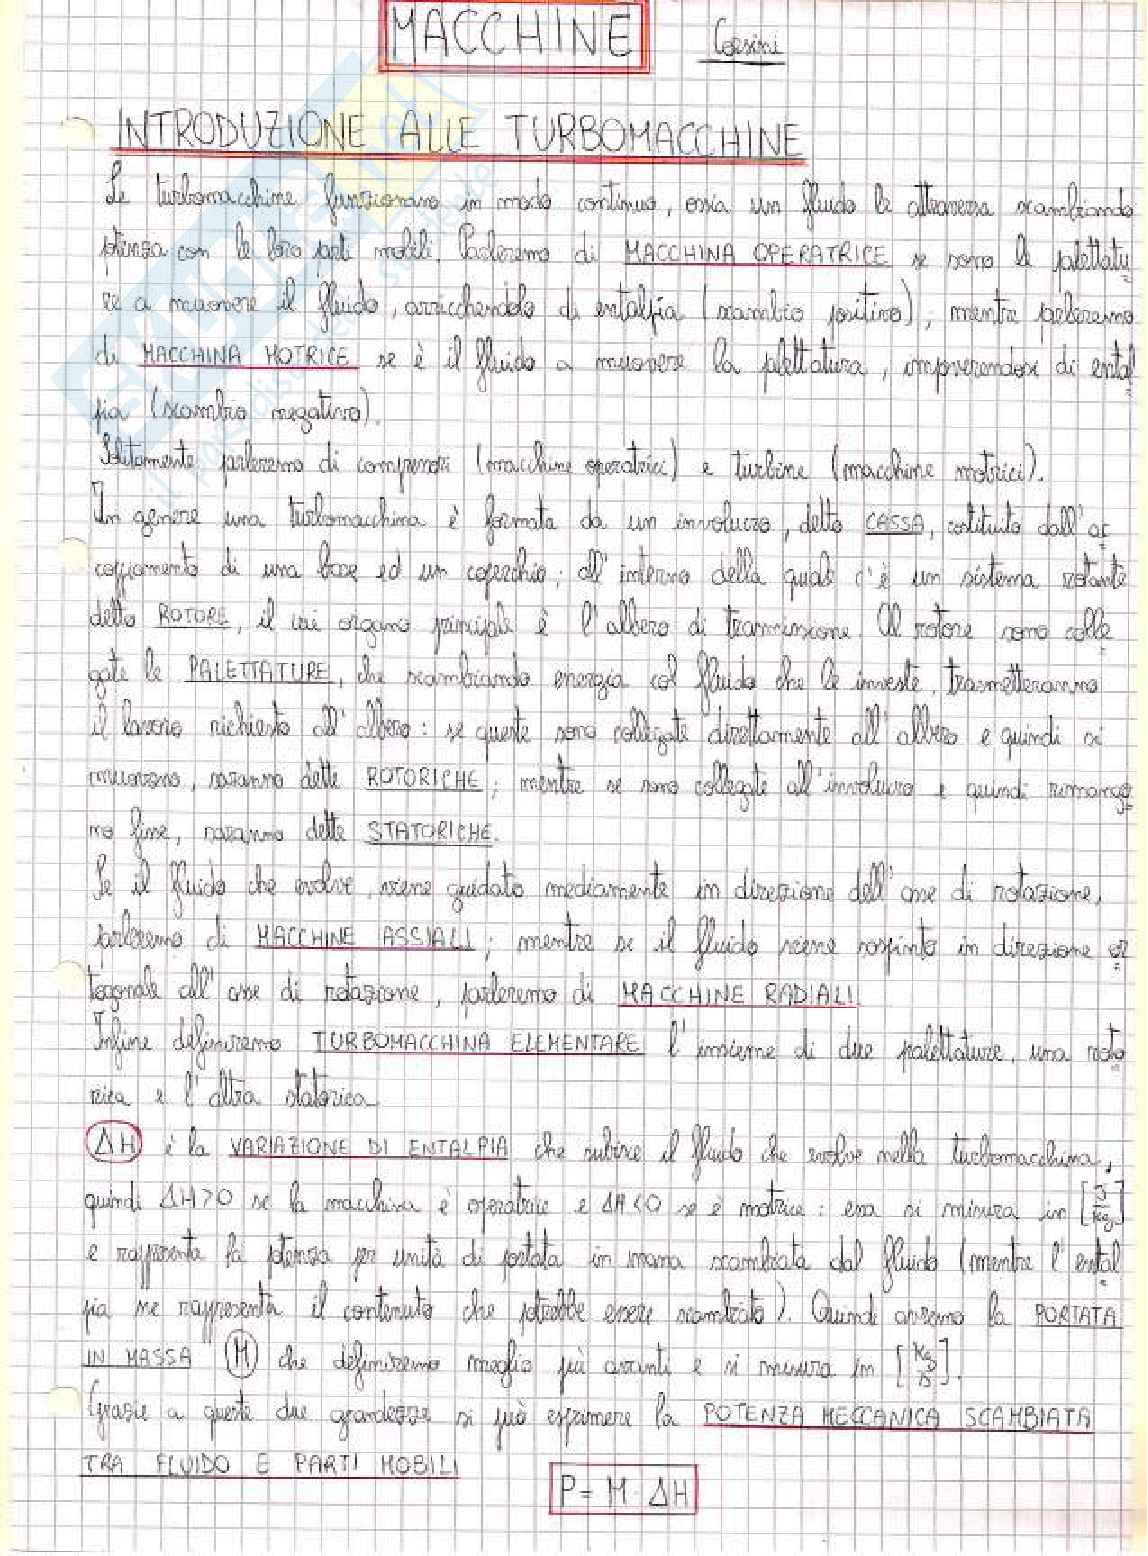 MACCHINE Corsini
INTRODUZIONE ALLE TURBOMACCHINE
Le turbomacchine funzionano in modo continuo, ossia un fluido le attraversa scambiando
potenza con le loro parti mobili. Parleremo di MACCHINA OPERATRICE se sono le palettatu
re a muovere il fluido, arricchendolo di entalpia (scambio positivo); mentre parleremo
di MACCHINA MOTRICE se è il fluido a muovere la palettatura, impoverendosi di ental
pia (scambio negativo).
Solitamente parleremo di compressori (macchine operatrici) e turbine (macchine motrici).
In genere una turbomacchina è formata da un involucro, detto CASSA, costituito dall'ac
coppiamento di una base ed un coperchio; all'interno della quale c'è un sistema rotante
detto ROTORE, il cui organo principale è l'albero di trasmissione. Al rotore sono colle
gate le PALETTATURE, che scambiando energia col fluido che le investe, trasmetteranno
il lavoro richiesto all'albero: se queste sono collegate direttamente all'albero e quindi si
muovono, saranno dette ROTORICHE; mentre se sono collegate all'involucro e quindi rimango
no fisse, saranno dette STATORICHE.
Se il fluido che evolve, viene guidato mediamente in direzione dell'asse di rotazione,
parleremo di MACCHINE ASSIALI; mentre se il fluido viene sospinto in direzione or
togonale all'asse di rotazione, parleremo di MACCHINE RADIALI
Infine definiremo TURBOMACCHINA ELEMENTARE l'insieme di due palettature, una roto
rica e l'altra statorica
ΔH è la VARIAZIONE DI ENTALPIA che subisce il fluido che evolve nella turbomacchina,
quindi ΔH>0 se la macchina è operatrice e ΔH<0 se è motrice: essa si misura in [J/Kg]
e rappresenta la potenza per unità di portata in massa scambiata dal fluido (mentre l'ental
pia ne rappresenta il contenuto che potrebbe essere scambiato). Quindi avremo la PORTATA
IN MASSA (M) che definiremo meglio più avanti e si misura in [Kg/s].
Grazie a queste due grandezze si può esprimere la POTENZA MECCANICA SCAMBIATA
TRA FLUIDO E PARTI MOBILI
P = M · ΔH